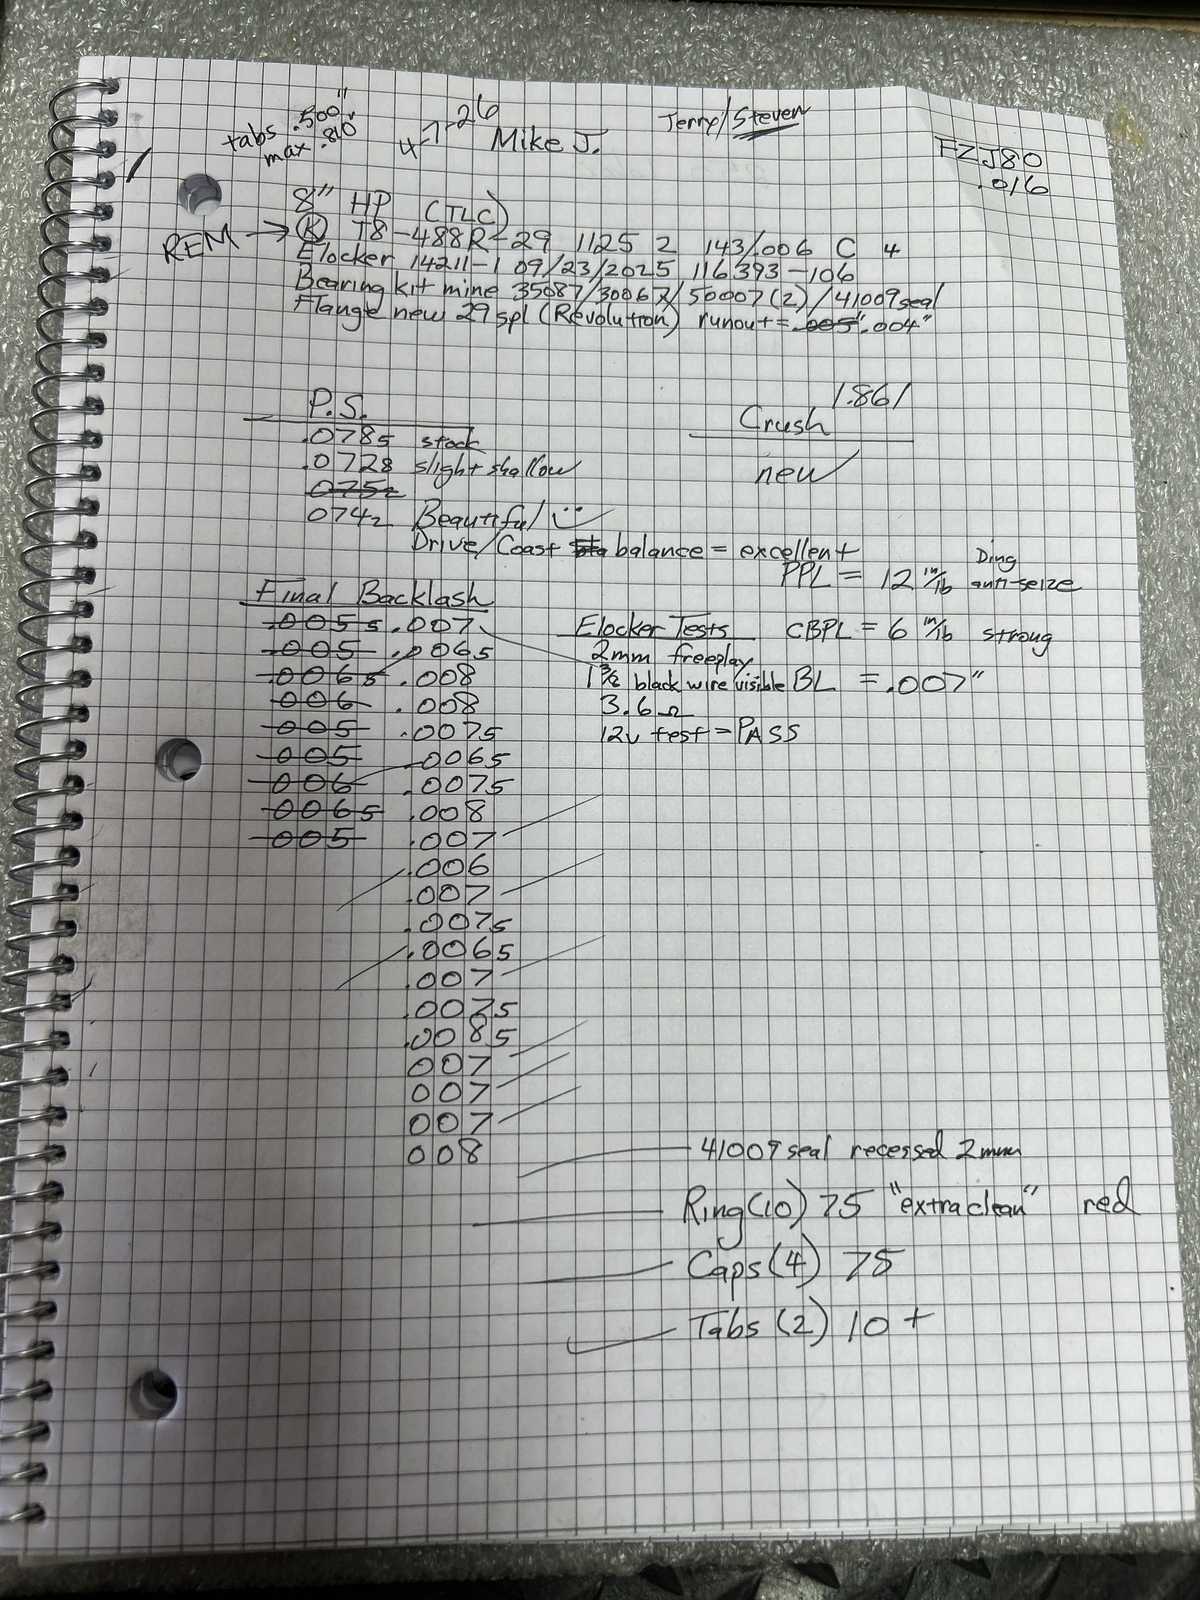 tabs .500"
max .810"
4-7-26
Mike J.
Jerry/Steven
FZJ80
.016
8" HP (TLC)
REM → (K) T8-488R-29 1125 2 143/.006 C 4
Elocker 14211-1 09/23/2025 116393-106
Bearing kit mine 35087/30067/50007(2)/41009 seal
Flange new 29 spl (Revolution) runout = .005" .004"
P.S.
.0785 stock
.0728 slight shallow
.0752
.0742 Beautiful
Drive/Coast balance = excellent
1.861
Crush
new
PPL = 12 in/lb Ding anti-seize
CBPL = 6 in/lb strong
BL = .007"
Final Backlash
.0055 .007
.005 .0065
.0065 .008
.006 .008
.005 .0075
.005 .0065
.006 .0075
.0065 .008
.005 .007
.006
.007
.0075
.0065
.007
.0075
.0085
007
007
007
008
Elocker Tests
2mm freeplay
black wire visible
3.6 Ω
12v test = PASS
41009 seal recessed 2mm
Ring (10) 75 "extra clean" red
Caps (4) 75
Tabs (2) 10+